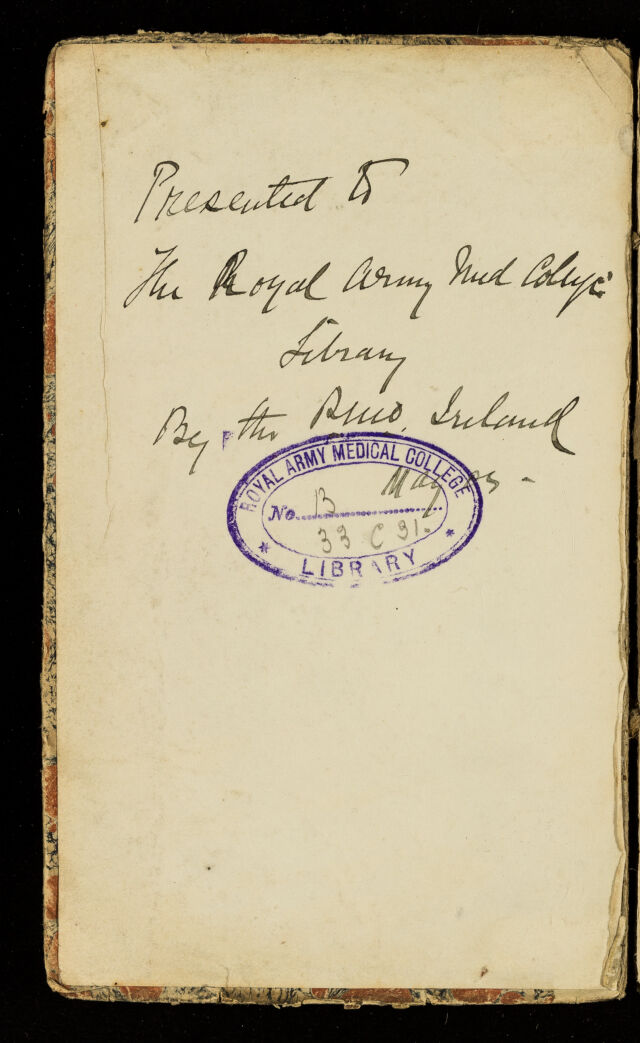 Presented to
The Royal Army Med College
Library
By the PMO. Ireland
May
ROYAL ARMY MEDICAL COLLEGE
No. B
33 C 31.
LIBRARY